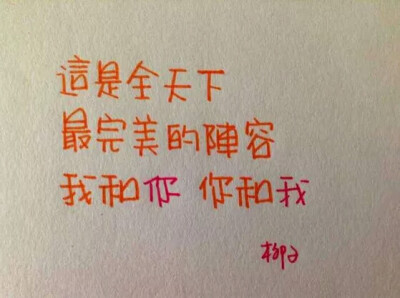 這是全天下
最完美的陣容
我和你 你和我
柳子